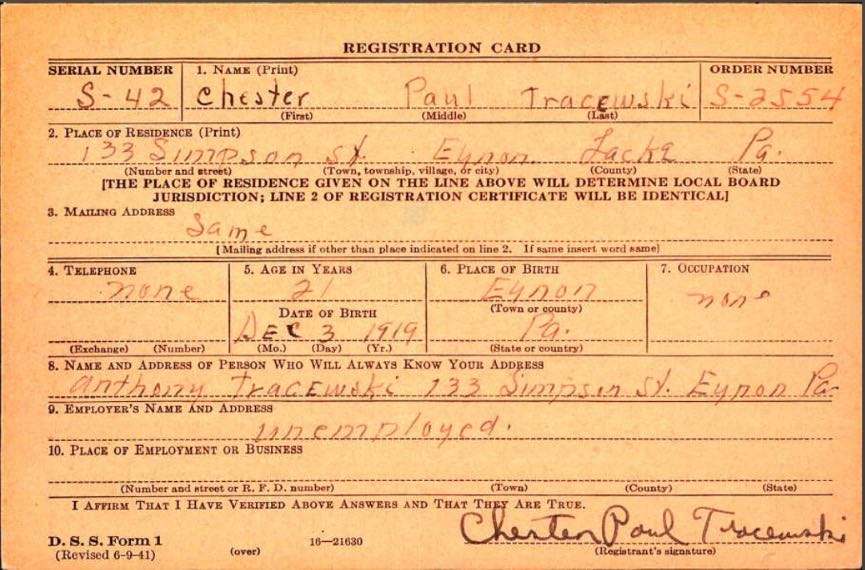 REGISTRATION CARD
SERIAL NUMBER 1. NAME (Print) ORDER NUMBER
S-42 Chester Paul Tracewski S-2554
(First) (Middle) (Last)
2. PLACE OF RESIDENCE (Print)
133 Simpson St. Eynon Lacka Pa.
(Number and street) (Town, township, village, or city) (County) (State)
[THE PLACE OF RESIDENCE GIVEN ON THE LINE ABOVE WILL DETERMINE LOCAL BOARD
JURISDICTION; LINE 2 OF REGISTRATION CERTIFICATE WILL BE IDENTICAL]
3. MAILING ADDRESS
Same
[Mailing address if other than place indicated on line 2. If same insert word same]
4. TELEPHONE 5. AGE IN YEARS 6. PLACE OF BIRTH 7. OCCUPATION
none 21 Eynon none
(Town or county)
DATE OF BIRTH
DEC 3 1919 Pa.
(Exchange) (Number) (Mo.) (Day) (Yr.) (State or country)
8. NAME AND ADDRESS OF PERSON WHO WILL ALWAYS KNOW YOUR ADDRESS
Anthony Tracewski 133 Simpson St. Eynon Pa.
9. EMPLOYER'S NAME AND ADDRESS
unemployed.
10. PLACE OF EMPLOYMENT OR BUSINESS
(Number and street or R. F. D. number) (Town) (County) (State)
I AFFIRM THAT I HAVE VERIFIED ABOVE ANSWERS AND THAT THEY ARE TRUE.
Chester Paul Tracewski
D. S. S. Form 1
(Revised 6-9-41) (over) 16—21630 (Registrant's signature)